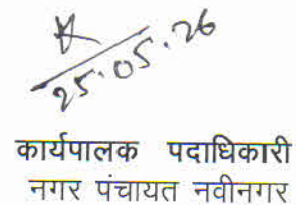 25.05.26
कार्यपालक पदाधिकारी
नगर पंचायत नवीनगर